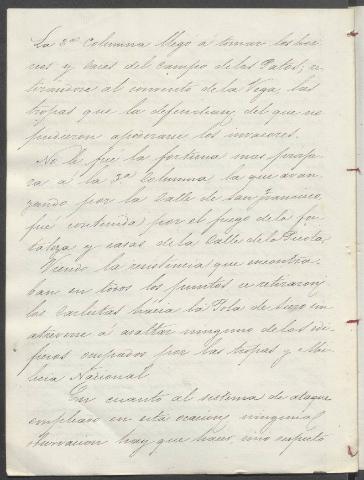 La 2ª Columna llegó á tomar los hor-
reos y casas del Campo de los Patos, re-
tirandose al convento de la Vega, las
tropas que la defendian, del que no
pudieron apoderarse los invasores.
No le fué la fortuna mas prospe-
ra a la 3ª Columna la que avan-
zando por la Calle de San Francisco,
fué contenida por el fuego de la for-
taleza y casas de la Calle de la Puerta.
Viendo la resistencia que encontra-
ban en todos los puntos se retiraron
los Carlistas hacia la Pola de Siero sin
atreverse á asaltar ninguno de los edi-
ficios ocupados por las tropas y Mi-
licia Nacional
En cuanto al sistema de ataque
empleado en esta ocasion, ninguna
observacion hay que hacer, mas respecto